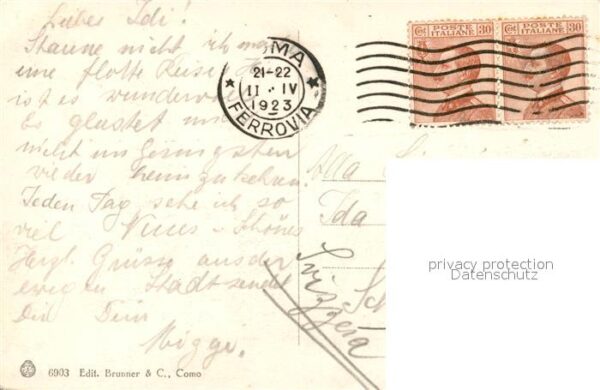 Liebes Idi!
Staune nicht ich ma
eine flotte Reise. H
ist es wunderv
Es glastet und
nicht im Geringsten
wieder heimzukehren.
Jeden Tag sehe ich so
viel Neues u Schönes
Herzl. Grüsse aus der
ewigen Stadt sendet
Dir Dein
MA
21-22
II·IV
1923
FERROVIA
Cmi 30
POSTE ITALIANE
Cmi 30
POSTE ITALIANE
Ida
Svizzera
privacy protection
Datenschutz
6903 Edit. Brunner & C., Como